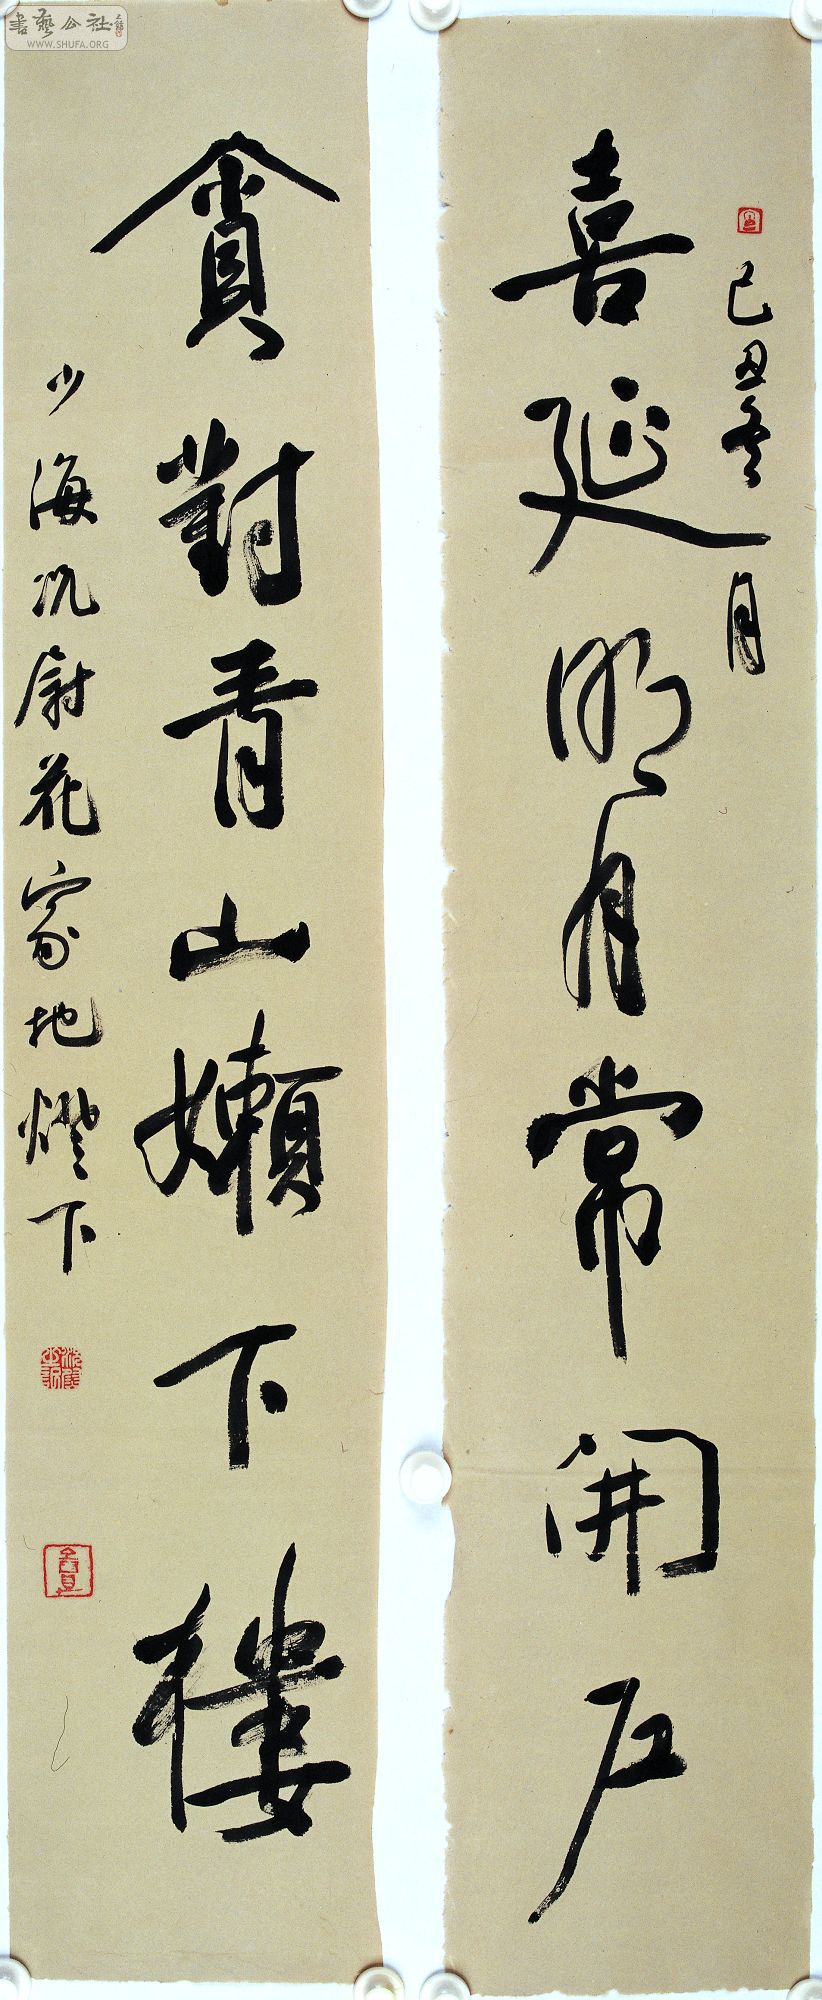 己丑冬月
喜延明月常開户
貪對青山嬾下樓
少海沉尉花家地燈下
書藝公社
WWW.SHUFA.ORG